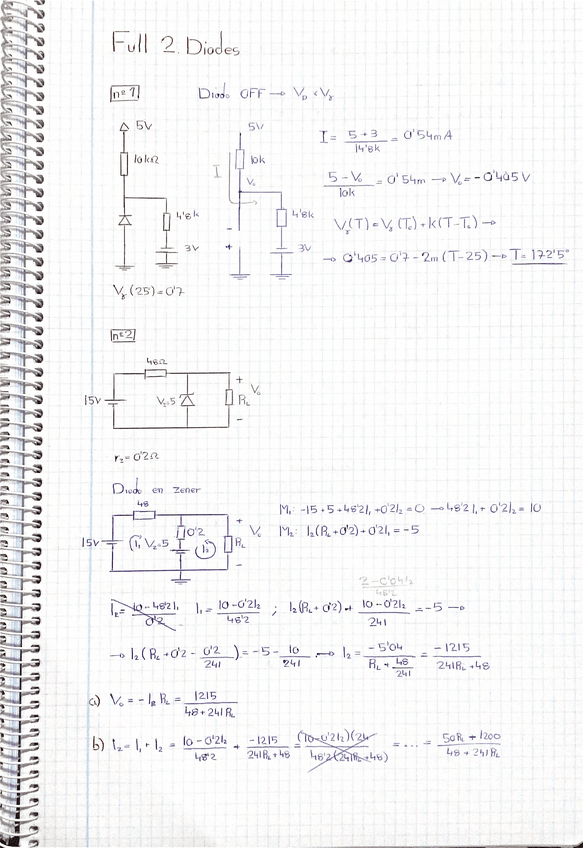 Full 2. Diodes
nº1
Diodo OFF → V_D < V_γ
5V
10kΩ
4'8k
3V
V_γ (25) = 0'7
5V
I
10k
V₀
4'8k
-
+
3V
I = (5 + 3)/(14'8k) = 0'54mA
(5 - V₀)/(10k) = 0'54m → V₀ = -0'405V
V_γ(T) = V_γ(T₀) + k(T-T₀) →
→ 0'405 = 0'7 - 2m(T-25) → T = 172'5°
nº2
48Ω
15V
V_z=5
+
R_L
V₀
-
r_z = 0'2Ω
Diodo en zener
48
15V
I₁
V_z=5
0'2
I₂
+
R_L
V₀
-
M₁: -15 + 5 + 48'2I₁ + 0'2I₂ = 0 → 48'2I₁ + 0'2I₂ = 10
M₂: I₂(R_L + 0'2) + 0'2I₁ = -5
(2 - 0'04I₂)/(48'2)
I₂ = (10 - 48'2I₁)/(0'2) I₁ = (10 - 0'2I₂)/(48'2) ; I₂(R_L + 0'2) + (10 - 0'2I₂)/(241) = -5 →
→ I₂(R_L + 0'2 - 0'2/241) = -5 - 10/241 → I₂ = (-5'04)/(R_L + 48/241) = (-1215)/(241R_L + 48)
a) V₀ = -I₂ R_L = (1215)/(48 + 241R_L)
b) I_z = I₁ + I₂ = (10 - 0'2I₂)/(48'2) + (-1215)/(241R_L + 48) = (10 - 0'2I₂)(24/48'2(241R_L + 48) = ... = (50R_L + 1200)/(48 + 241R_L)